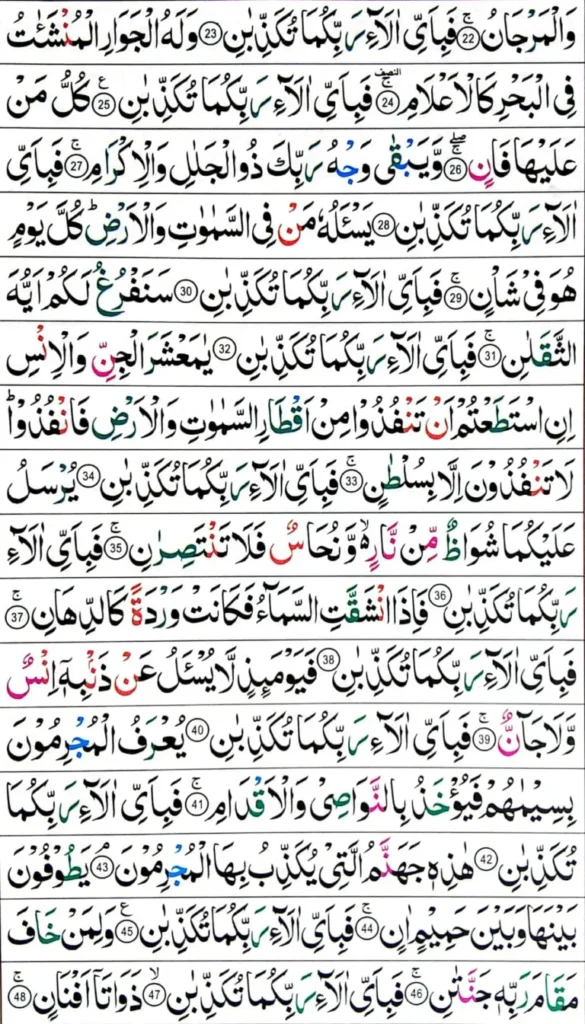 وَالۡمَرۡجَانُ ۚ‏ ﴿22﴾ فَبِاَىِّ اٰلَاۤءِ رَبِّكُمَا تُكَذِّبٰنِ‏ ﴿23﴾ وَلَهُ الۡجَوَارِ الۡمُنۡشَئٰتُ
فِى الۡبَحۡرِ كَالۡاَعۡلَامِ‌ۚ‏ ﴿24﴾ فَبِاَىِّ اٰلَاۤءِ رَبِّكُمَا تُكَذِّبٰنِ‏ ﴿25﴾ كُلُّ مَنۡ
عَلَيۡهَا فَانٍ‌ ۚ‏ۖ ﴿26﴾ وَّيَبۡقٰى وَجۡهُ رَبِّكَ ذُو الۡجَلٰلِ وَالۡاِكۡرَامِ‌ۚ‏ ﴿27﴾ فَبِاَىِّ
اٰلَاۤءِ رَبِّكُمَا تُكَذِّبٰنِ‏ ﴿28﴾ يَسۡـَٔـلُهٗ مَنۡ فِى السَّمٰوٰتِ وَالۡاَرۡضِ‌ؕ كُلَّ يَوۡمٍ
هُوَ فِىۡ شَاۡنٍ‌ۚ‏ ﴿29﴾ فَبِاَىِّ اٰلَاۤءِ رَبِّكُمَا تُكَذِّبٰنِ‏ ﴿30﴾ سَنَفۡرُغُ لَـكُمۡ اَيُّهَ
الثَّقَلٰنِ‌ۚ‏ ﴿31﴾ فَبِاَىِّ اٰلَاۤءِ رَبِّكُمَا تُكَذِّبٰنِ‏ ﴿32﴾ يٰمَعۡشَرَ الۡجِنِّ وَالۡاِنۡسِ
اِنِ اسۡتَطَعۡتُمۡ اَنۡ تَنۡفُذُوۡا مِنۡ اَقۡطَارِ السَّمٰوٰتِ وَالۡاَرۡضِ فَانْفُذُوۡا‌ؕ
لَا تَنۡفُذُوۡنَ اِلَّا بِسُلۡطٰنٍ‌ۚ‏ ﴿33﴾ فَبِاَىِّ اٰلَاۤءِ رَبِّكُمَا تُكَذِّبٰنِ‏ ﴿34﴾ يُرۡسَلُ
عَلَيۡكُمَا شُوَاظٌ مِّنۡ نَّارٍ ۙ وَّنُحَاسٌ فَلَا تَنۡتَصِرٰنِ‌ۚ‏ ﴿35﴾ فَبِاَىِّ اٰلَاۤءِ
رَبِّكُمَا تُكَذِّبٰنِ‏ ﴿36﴾ فَاِذَا انْشَقَّتِ السَّمَآءُ فَكَانَتۡ وَرۡدَةً كَالدِّهَانِ‌ۚ‏ ﴿37﴾
فَبِاَىِّ اٰلَاۤءِ رَبِّكُمَا تُكَذِّبٰنِ‏ ﴿38﴾ فَيَوۡمَٮِٕذٍ لَّا يُسۡـَٔـلُ عَنۡ ذَنۡۢبِهٖۤ اِنۡسٌ
وَّلَا جَآنٌّ‌ۚ‏ ﴿39﴾ فَبِاَىِّ اٰلَاۤءِ رَبِّكُمَا تُكَذِّبٰنِ‏ ﴿40﴾ يُعۡرَفُ الۡمُجۡرِمُوۡنَ
بِسِيۡمٰهُمۡ فَيُؤۡخَذُ بِالنَّوَاصِىۡ وَ الۡاَقۡدَامِ‌ۚ‏ ﴿41﴾ فَبِاَىِّ اٰلَاۤءِ رَبِّكُمَا
تُكَذِّبٰنِ‏ ﴿42﴾ هٰذِهٖ جَهَنَّمُ الَّتِىۡ يُكَذِّبُ بِهَا الۡمُجۡرِمُوۡنَ‌ۘ‏ ﴿43﴾ يَطُوۡفُوۡنَ
بَيۡنَهَا وَبَيۡنَ حَمِيۡمٍ اٰنٍ‌ۚ‏ ﴿44﴾ فَبِاَىِّ اٰلَاۤءِ رَبِّكُمَا تُكَذِّبٰنِ‏ ﴿45﴾ وَلِمَنۡ خَافَ
مَقَامَ رَبِّهٖ جَنَّتٰنِ‌ۚ‏ ﴿46﴾ فَبِاَىِّ اٰلَاۤءِ رَبِّكُمَا تُكَذِّبٰنِۙ‏ ﴿47﴾ ذَوَاتَاۤ اَفۡنَانٍ‌ۚ‏ ﴿48﴾